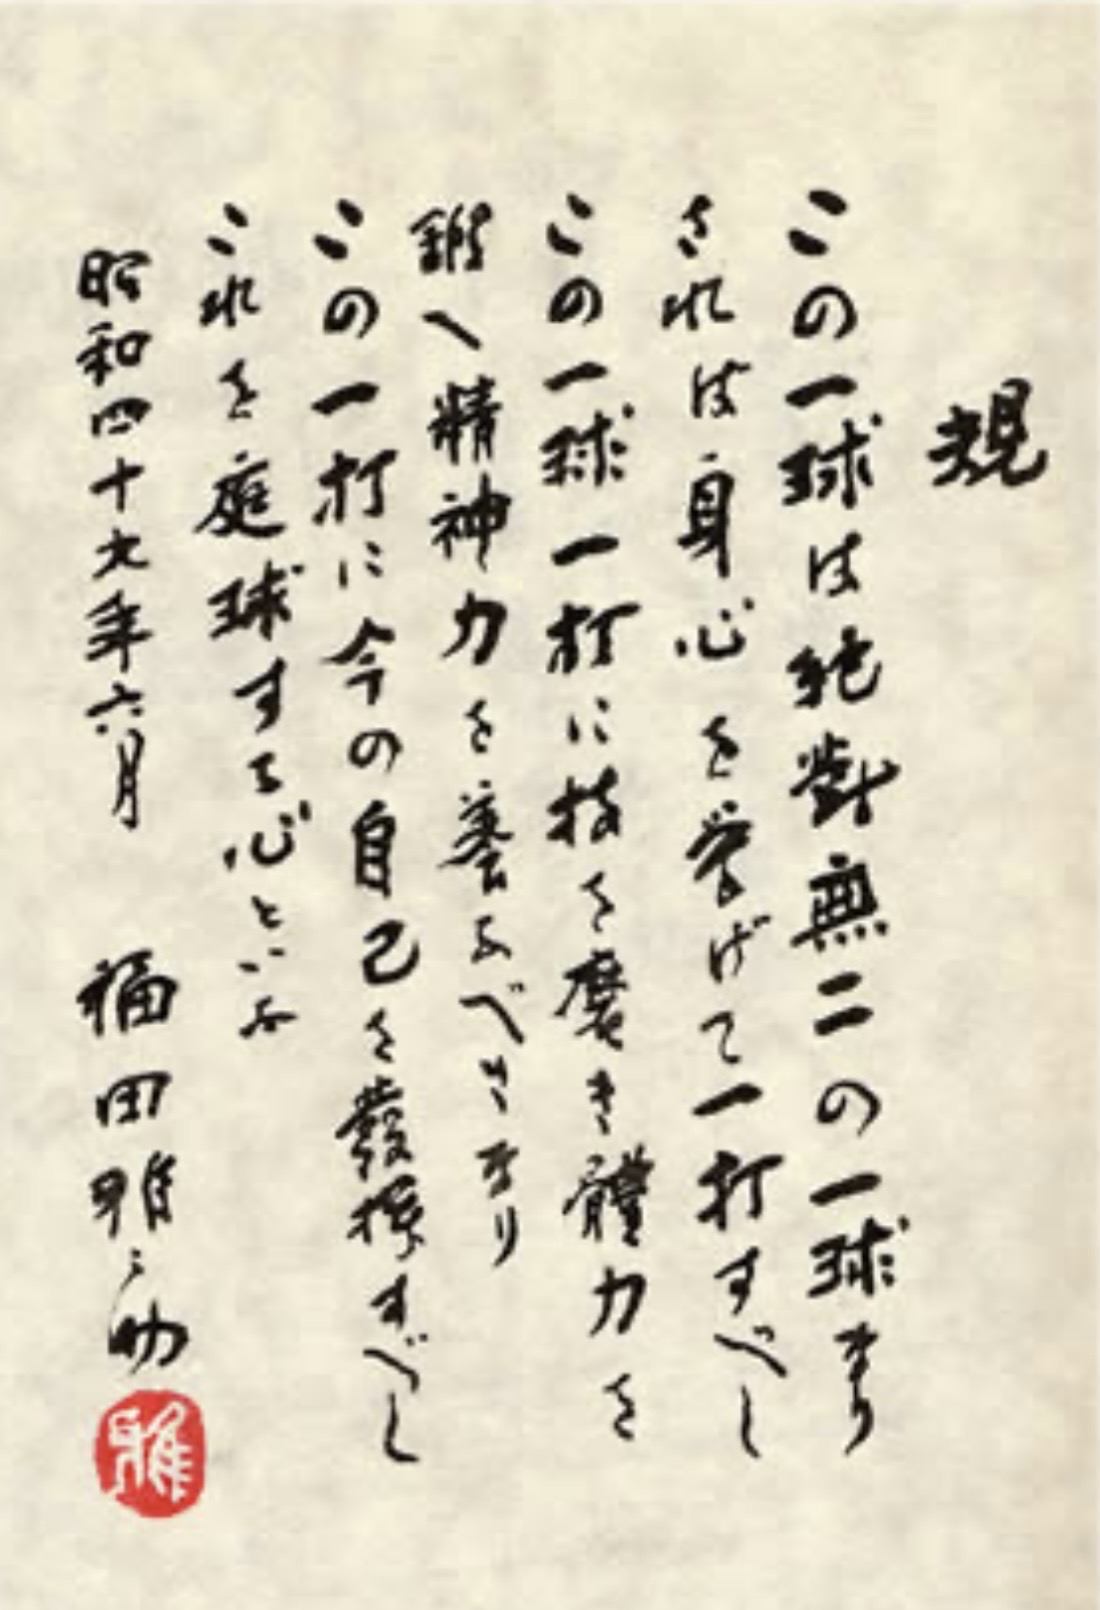 規
この一球は絶對無二の一球なり
されは身心を挙げて一打すべし
この一球一打に技を磨き體力を
鍛へ精神力を養ふべきなり
この一打に今の自己を發揮すべし
これを庭球する心といふ
昭和四十六年六月 福田雅之助
雅